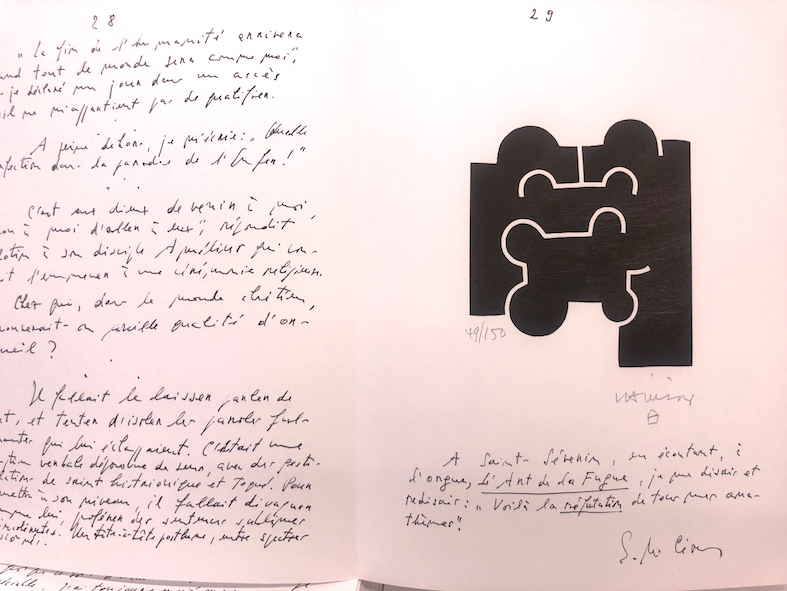 28
„ La fin de l'humanité arrivera
and tout le monde sera comme moi",
-je déclaré un jour dans un accès
il ne m'appartient pas de qualifier.
A peine dehors, je m'écrie : „ Quelle
fection dans la parodie de l'Enfer ! "
C'est aux dieux de venir à moi,
on à moi d'aller à eux", répondit
lotin à son disciple Amélius qui vou-
it l'emmener à une cérémonie religieuse.
Chez qui, dans le monde chrétien,
ouverait-on pareille qualité d'or-
ueil ?
Il fallait le laisser parler de
t, et tenter d'isoler les paroles ful-
antes qui lui échappaient. C'était une
ption verbale dépourvue de sens, avec des gesti-
lations de saint histrionique et toqué. Pour
mettre à son niveau, il fallait divaguer
me lui, proférer des sentences sublimes
incohérentes. Un tête-à-tête posthume, entre spectres
sionnés.
29
49/150
A Saint-Séverin, en écoutant, à
l'orgue, L'Art de la Fugue, je me disais et
redisais : „ Voilà la réfutation de tous mes ana-
thèmes".